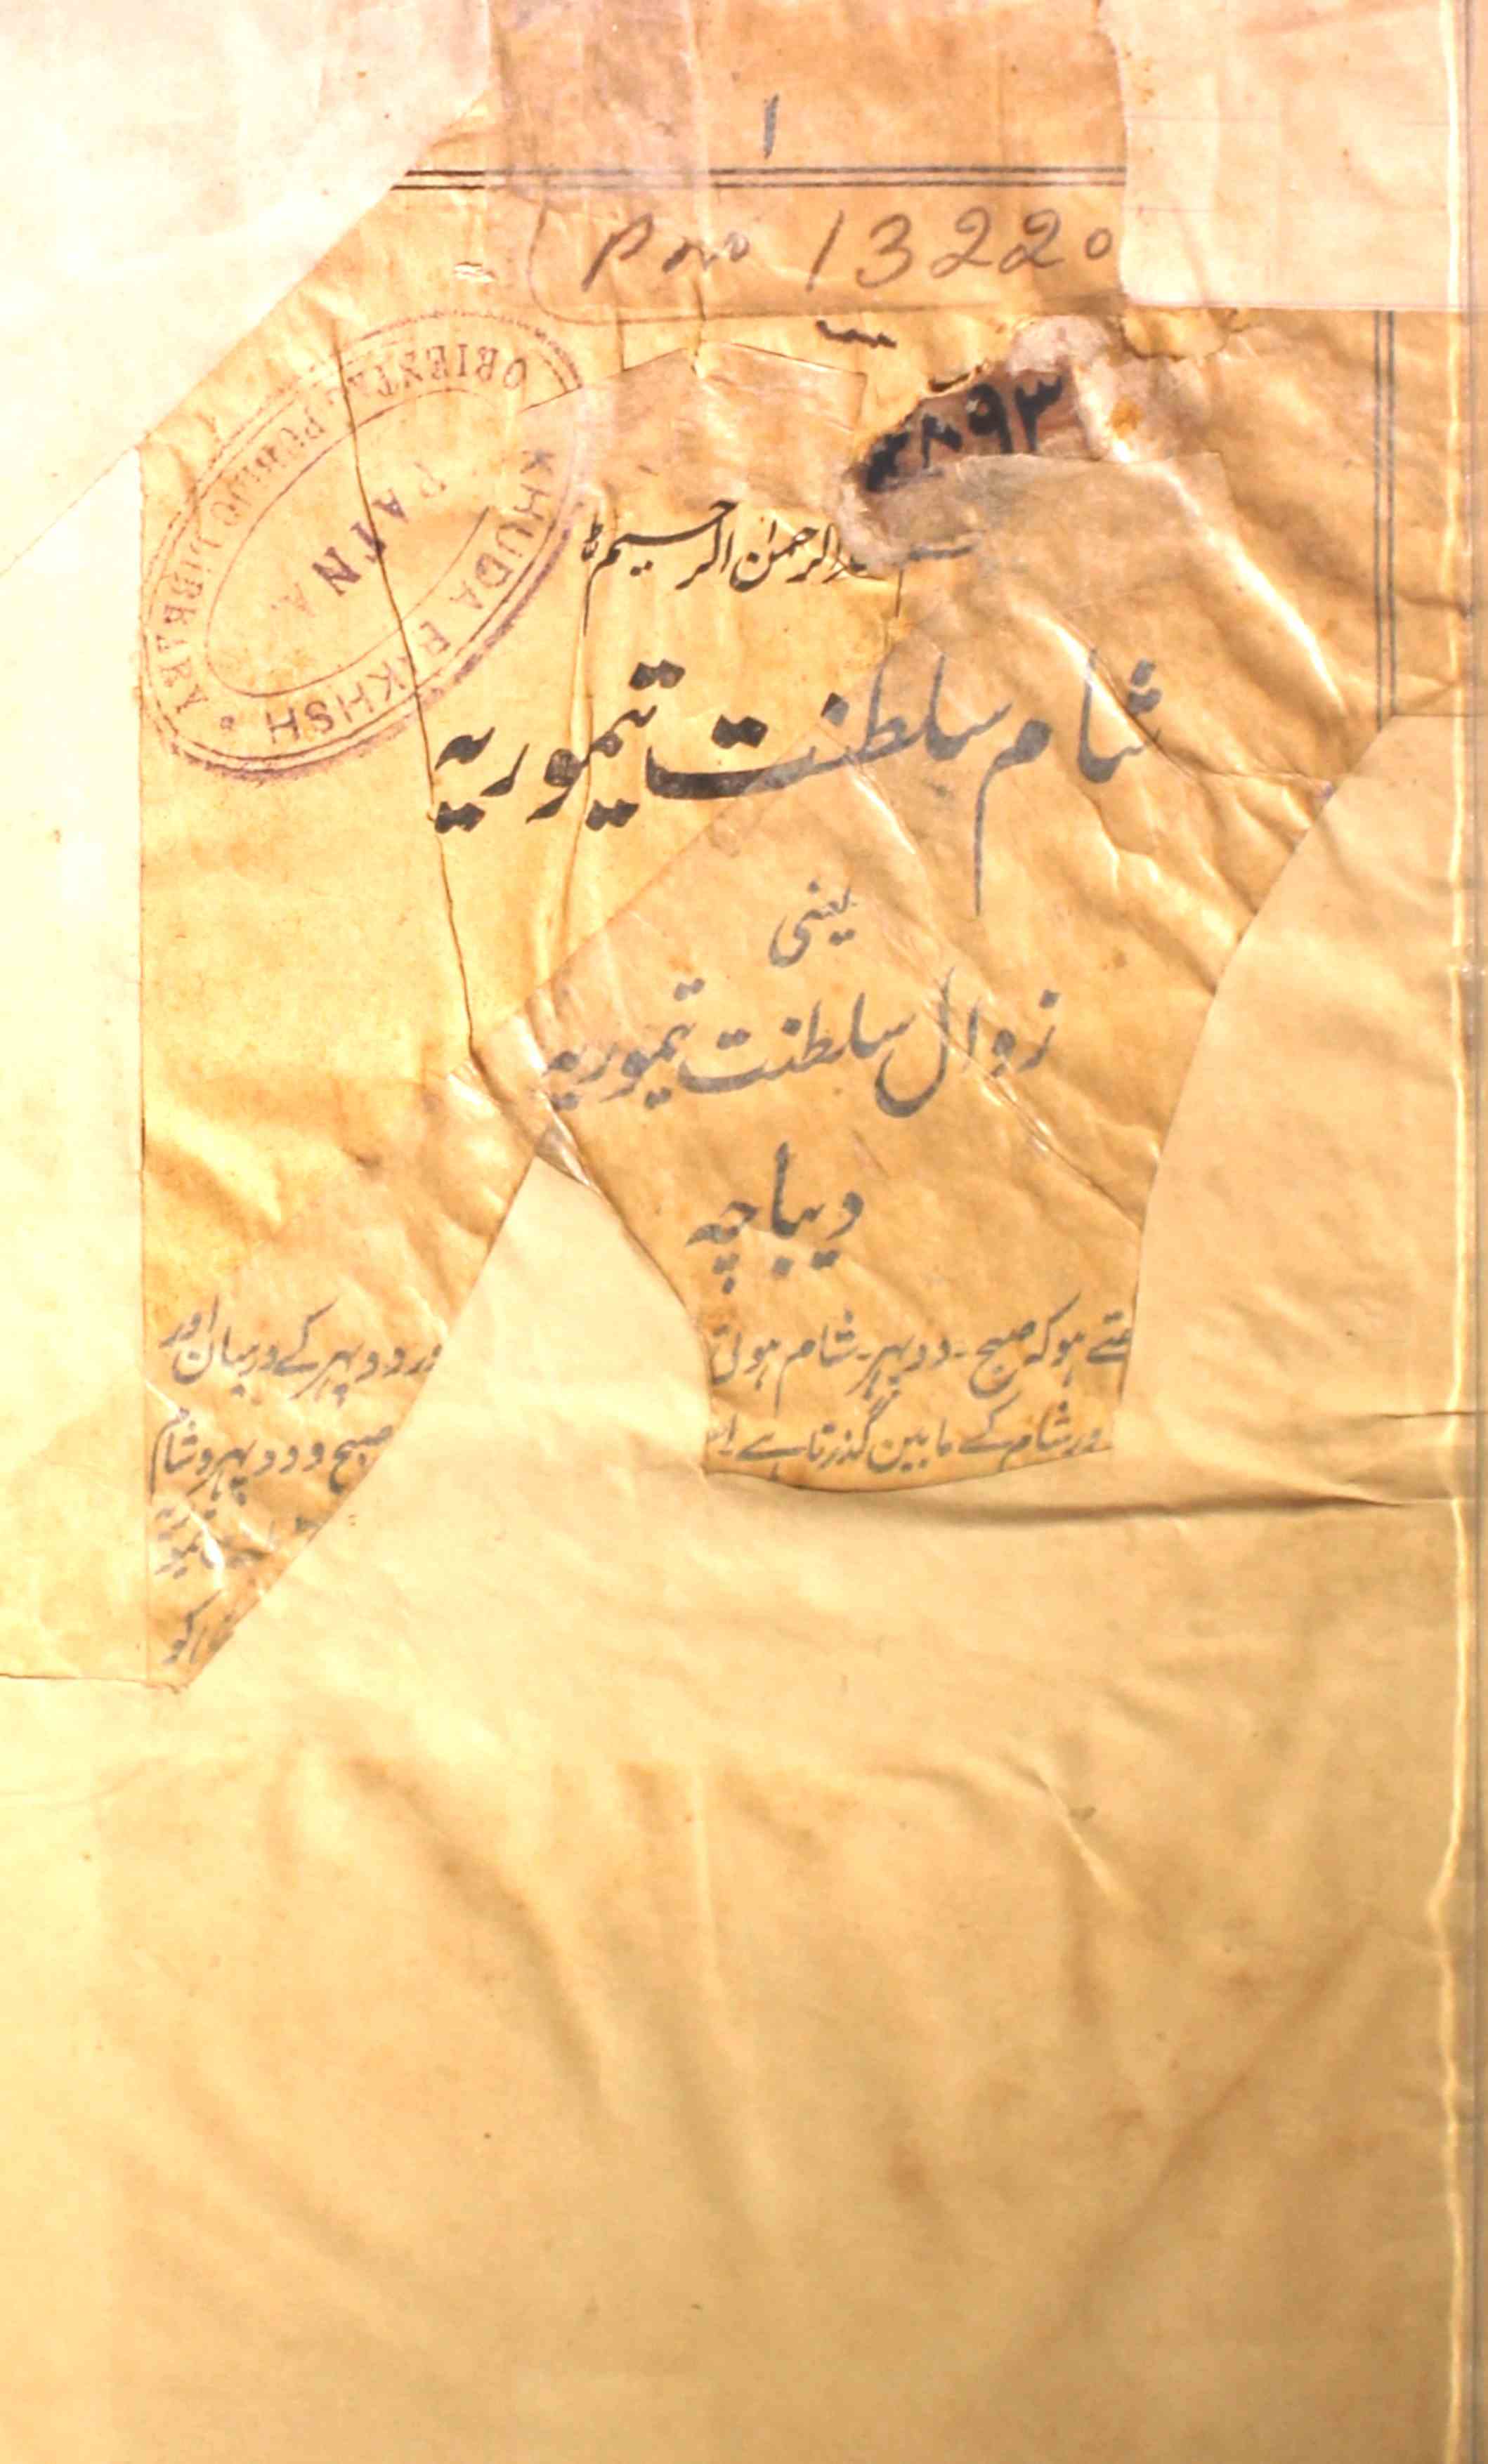 ۱
P no 13220
۸۹۳
KHUDA BAKHSH
ORIENTAL PUBLIC LIBRARY
PATNA
الرحمٰن الرحیم
شام سلطنت تیموریہ
یعنی
زوال سلطنت تیموریہ
دیباچہ
ہو کہ صبح ۔ دوپہر ۔ شام ہوتی دوپہر کے درمیان اور
شام کے مابین گذرتا ہے صبح و دوپہر و شام
کو